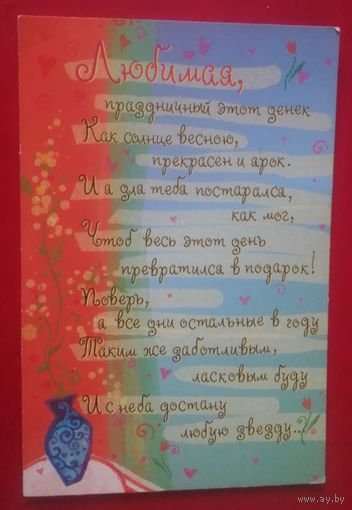 Любимая,
праздничный этот денек
Как солнце весною,
прекрасен и ярок.
И я для тебя постарался,
как мог,
Чтоб весь этот день
превратился в подарок!
Поверь,
я все дни остальные в году
Таким же заботливым,
ласковым буду
И с неба достану
любую звезду...
www.ay.by